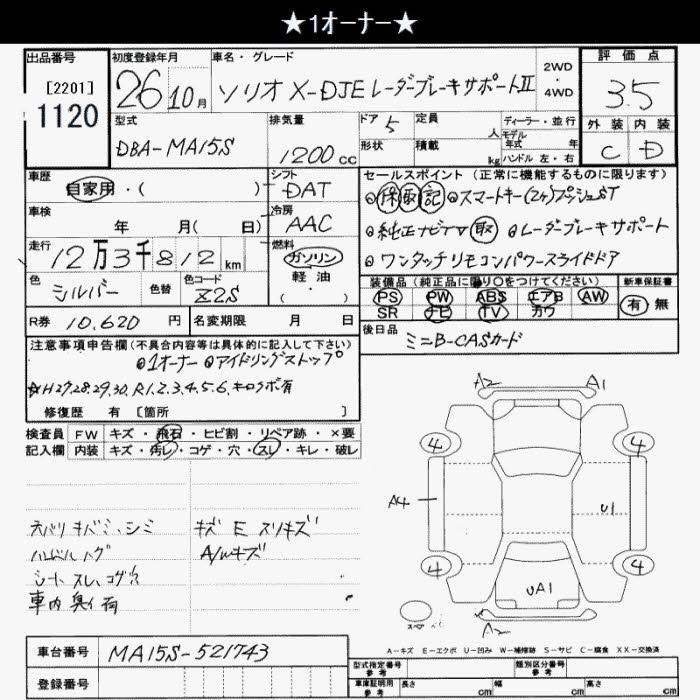 ★1オーナー★
出品番号
[2201]
1120
初度登録年月
26 10月
車名・グレード
ソリオ X-DJE レーダーブレーキサポートⅡ
2WD
・
4WD
評価点
3.5
外装 内装
C D
型式
DBA-MA15S
排気量
1200cc
ドア 5
形状
定員 人
積載 kg
ディーラー・並行
モデル年式 年
ハンドル 左・右
車歴
自家用・( )
シフト
DAT
車検
年 月( 日)
冷房
AAC
走行
12万3千812km
燃料
ガソリン
軽・油
( ・ )
色
シルバー
色替
色コード
Z2S
R券 10,620円
名変期限 月 日
セールスポイント(正常に機能するものに限ります)
◎保 取 記 ◎スマートキー(2ヶ)プッシュST
◎純正ナビTV 取 ◎レーダーブレーキサポート
◎ワンタッチリモコンパワースライドドア
装備品(純正品に限り○をつけてください)
PS PW ABS エアB AW
SR ナビ TV カワ
新車保証書
有 無
後日品
ミニB-CASカード
注意事項申告欄(不具合内容等は具体的に記入して下さい)
◎1オーナー ◎アイドリングストップ
☆H27.28.29.30.R1.2.3.4.5.6.キロクボ有
修復歴 有 [箇所 ]
検査員記入欄
FW キズ・飛石・ヒビ割・リペア跡・×要
内装 キズ・汚レ・コゲ・穴・スレ・キレ・破レ
天バリ キバミ、シミ
ハンドル ハゲ
シート スレ、コゲ穴
車内 臭イ有
キズ E スリキズ
A/Wキズ
A2 A1
4 4
A4 U1
4 4
UA1
A2
A-キズ E-エクボ U-凹み W-補修跡 S-サビ C-腐食 XX-交換済
車台番号 MA15S-521743
登録番号
型式指定番号 参考
類別区分番号 参考
車庫証明用 参考
長さ cm 幅 cm 高さ cm